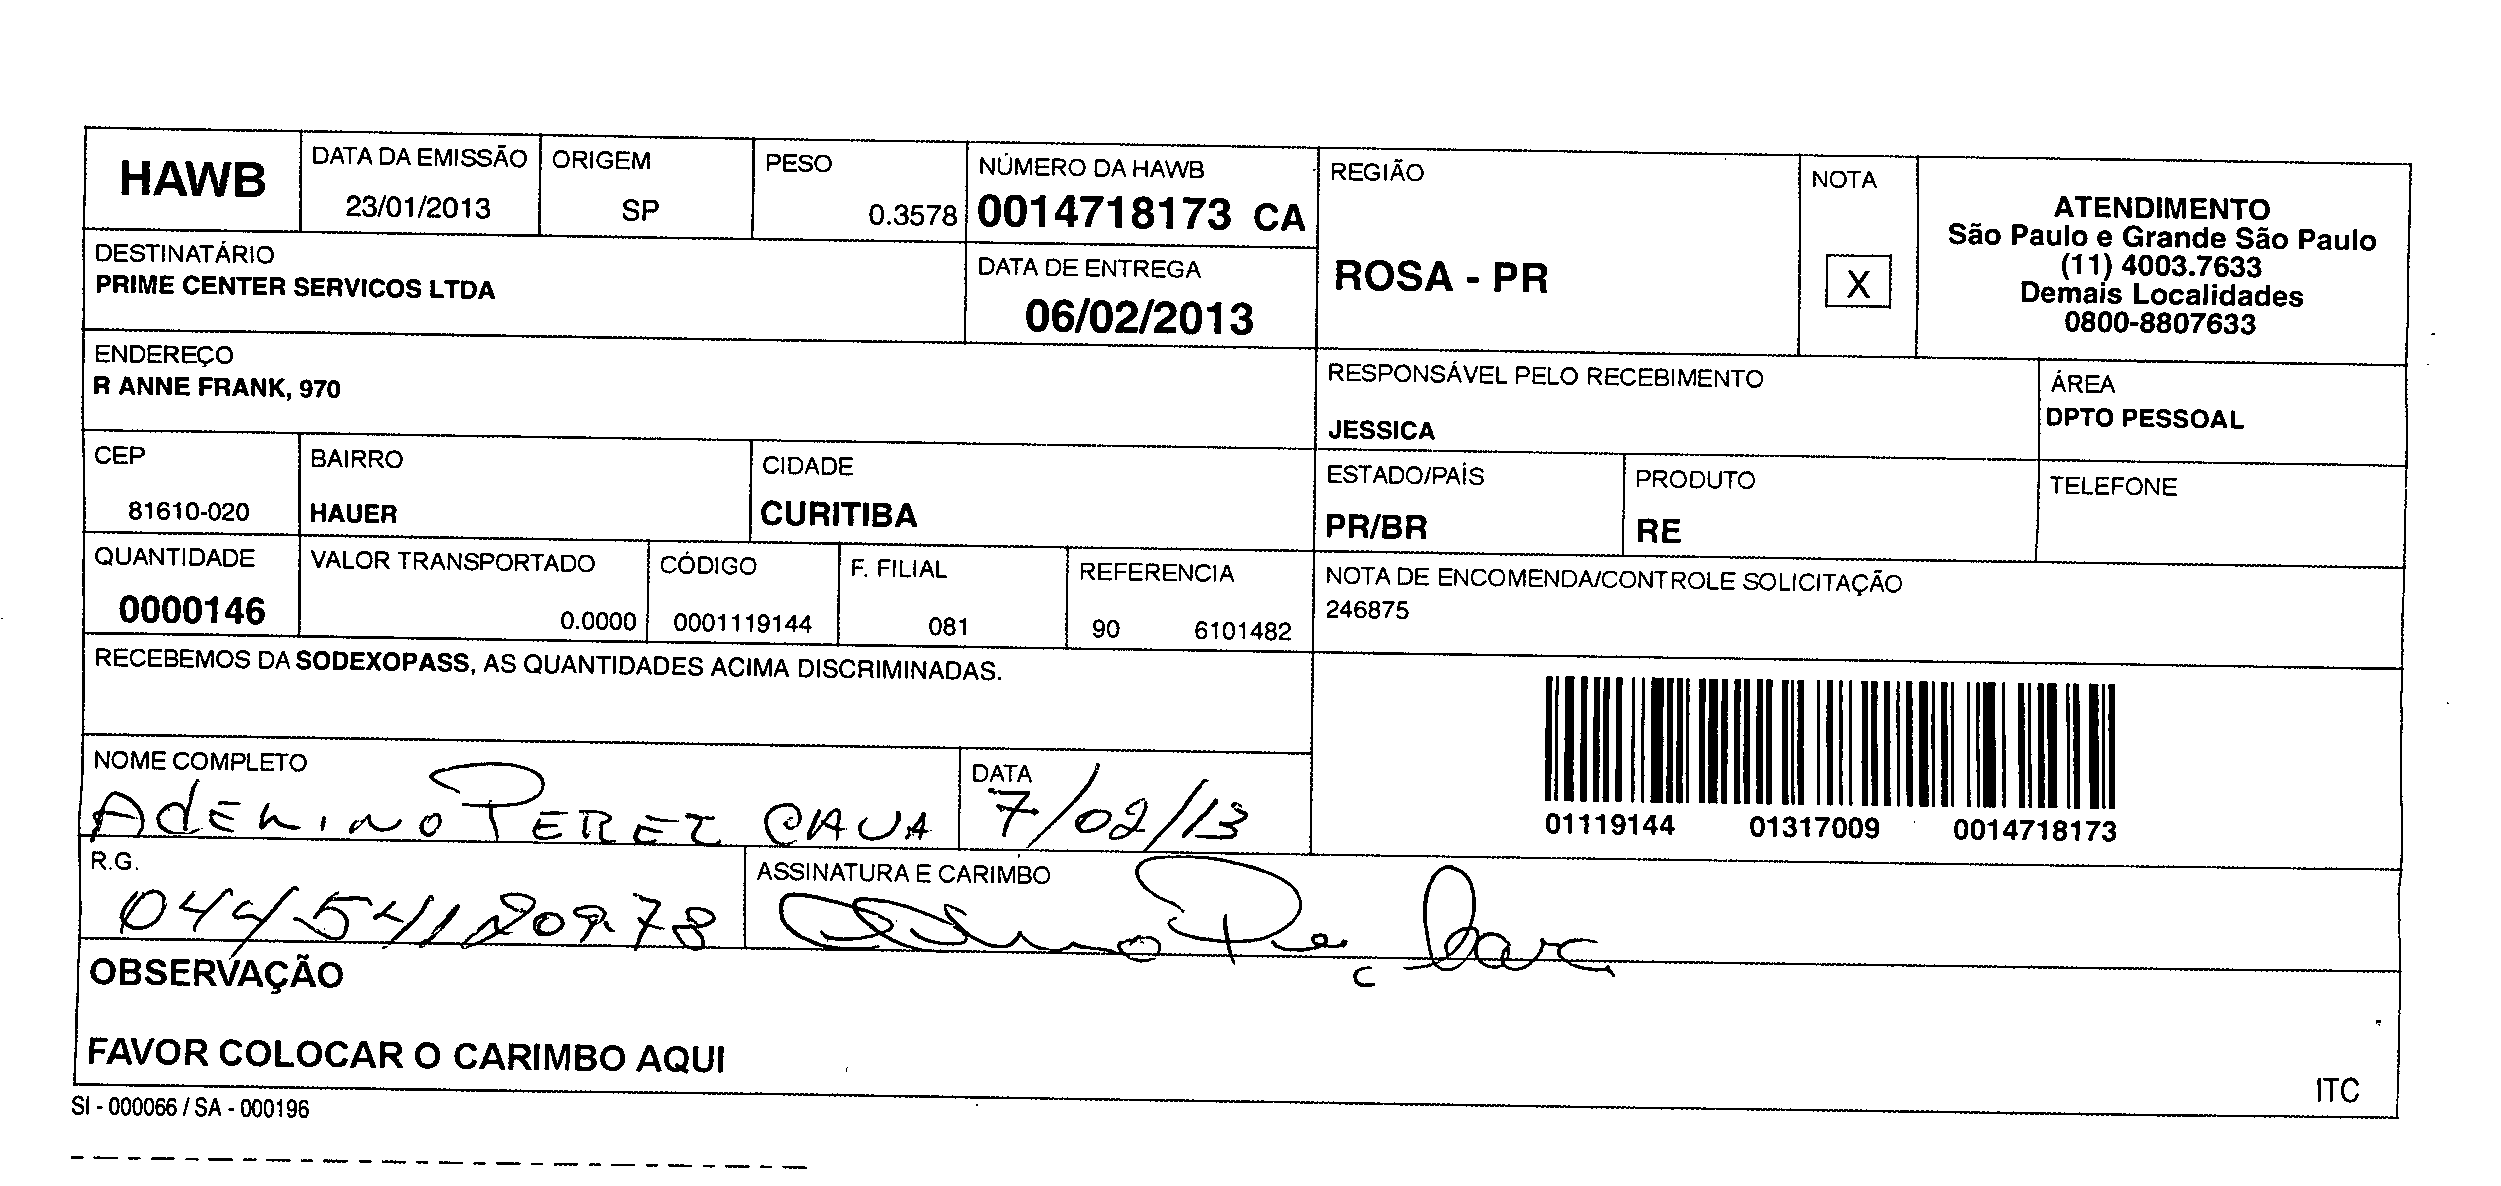 HAWB
DATA DA EMISSÃO
23/01/2013
ORIGEM
SP
PESO
0.3578
NÚMERO DA HAWB
0014718173 CA
REGIÃO
ROSA - PR
NOTA
X
ATENDIMENTO
São Paulo e Grande São Paulo
(11) 4003.7633
Demais Localidades
0800-8807633
DESTINATÁRIO
PRIME CENTER SERVICOS LTDA
DATA DE ENTREGA
06/02/2013
ENDEREÇO
R ANNE FRANK, 970
RESPONSÁVEL PELO RECEBIMENTO
JESSICA
ÁREA
DPTO PESSOAL
CEP
81610-020
BAIRRO
HAUER
CIDADE
CURITIBA
ESTADO/PAÍS
PR/BR
PRODUTO
RE
TELEFONE
QUANTIDADE
0000146
VALOR TRANSPORTADO
0.0000
CÓDIGO
0001119144
F. FILIAL
081
REFERENCIA
90 6101482
NOTA DE ENCOMENDA/CONTROLE SOLICITAÇÃO
246875
RECEBEMOS DA SODEXOPASS, AS QUANTIDADES ACIMA DISCRIMINADAS.
01119144 01317009 0014718173
NOME COMPLETO
PEREZ
DATA
7/02/13
R.G.
ASSINATURA E CARIMBO
OBSERVAÇÃO
FAVOR COLOCAR O CARIMBO AQUI
ITC
SI - 000066 / SA - 000196